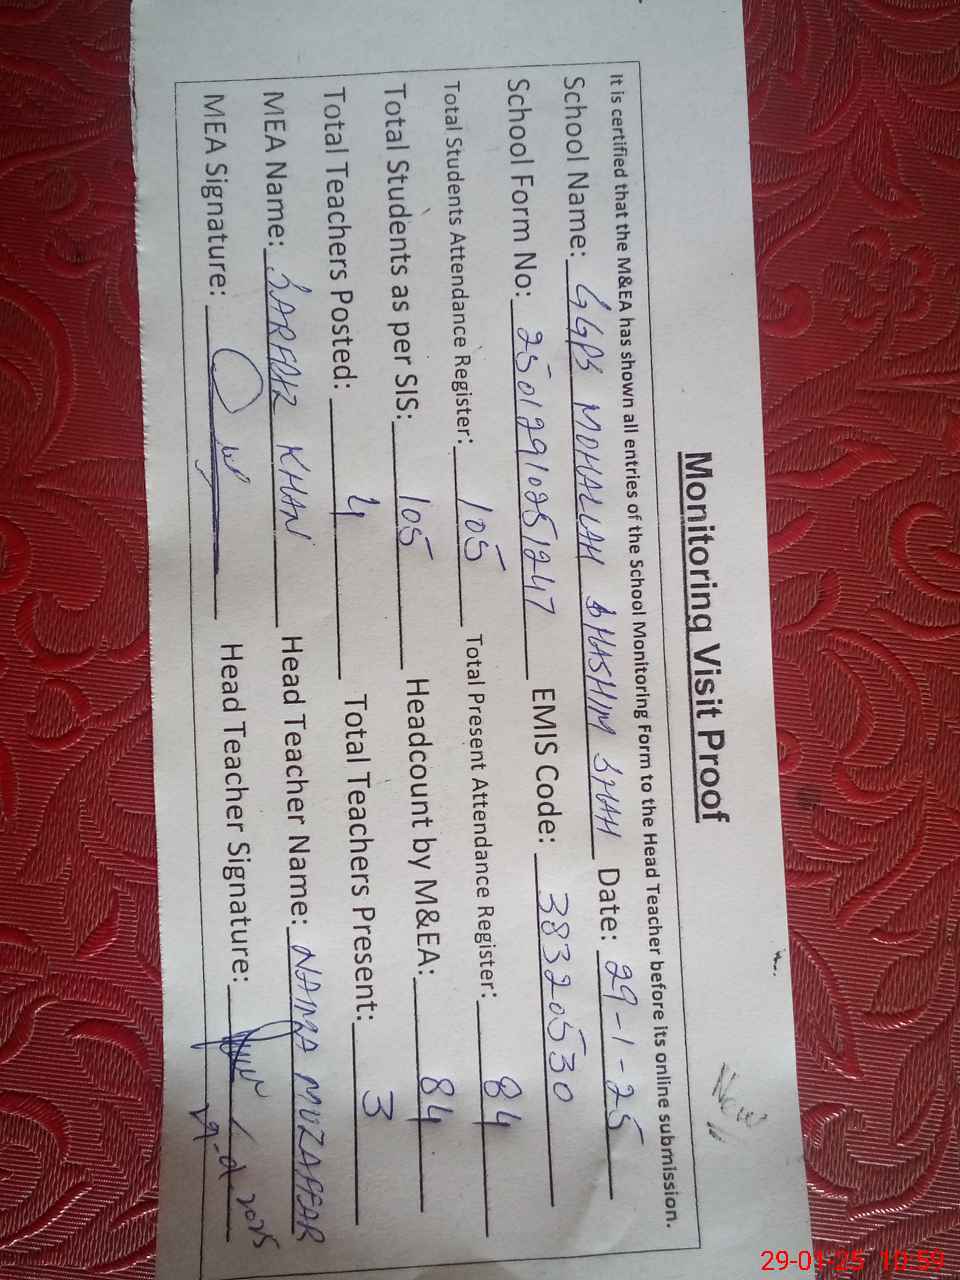 New
Monitoring Visit Proof
It is certified that the M&EA has shown all entries of the School Monitoring Form to the Head Teacher before its online submission.
School Name: GGPS MOHALLAH BHASHIM SHAH Date: 29-1-25
School Form No: 25012910251247 EMIS Code: 38320530
Total Students Attendance Register: 105 Total Present Attendance Register: 84
Total Students as per SIS: 105 Headcount by M&EA: 84
Total Teachers Posted: 4 Total Teachers Present: 3
MEA Name: SARFRAZ KHAN Head Teacher Name: NAZRA MUZAFFAR
MEA Signature: Head Teacher Signature:
29-01-25 10:59